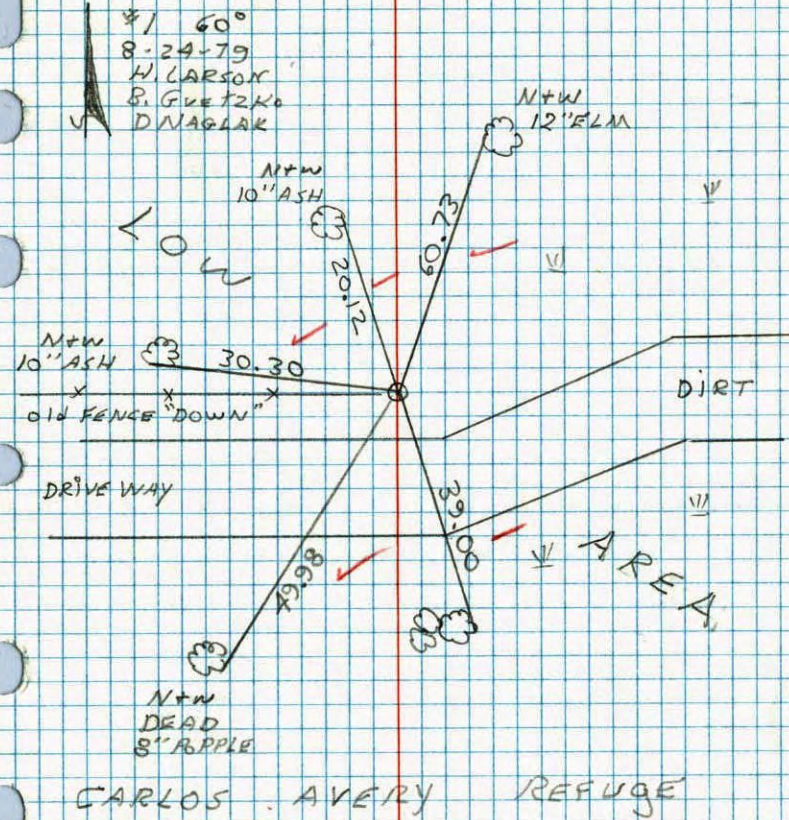 #1 60°
8-24-79
H. LARSON
B. GUETZKO
D NAGLAK
N+W
12" ELM
N+W
10" ASH
LOW
60.73
20.12
N+W
10" ASH
30.30
DIRT
Old FENCE "DOWN"
DRIVEWAY
39.00
49.98
AREA
N+W
DEAD
8" POPPLE
CARLOS AVERY REFUGE